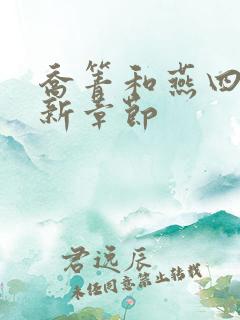 乔箐和燕四
新章节
君远辰
未经同意禁止转载